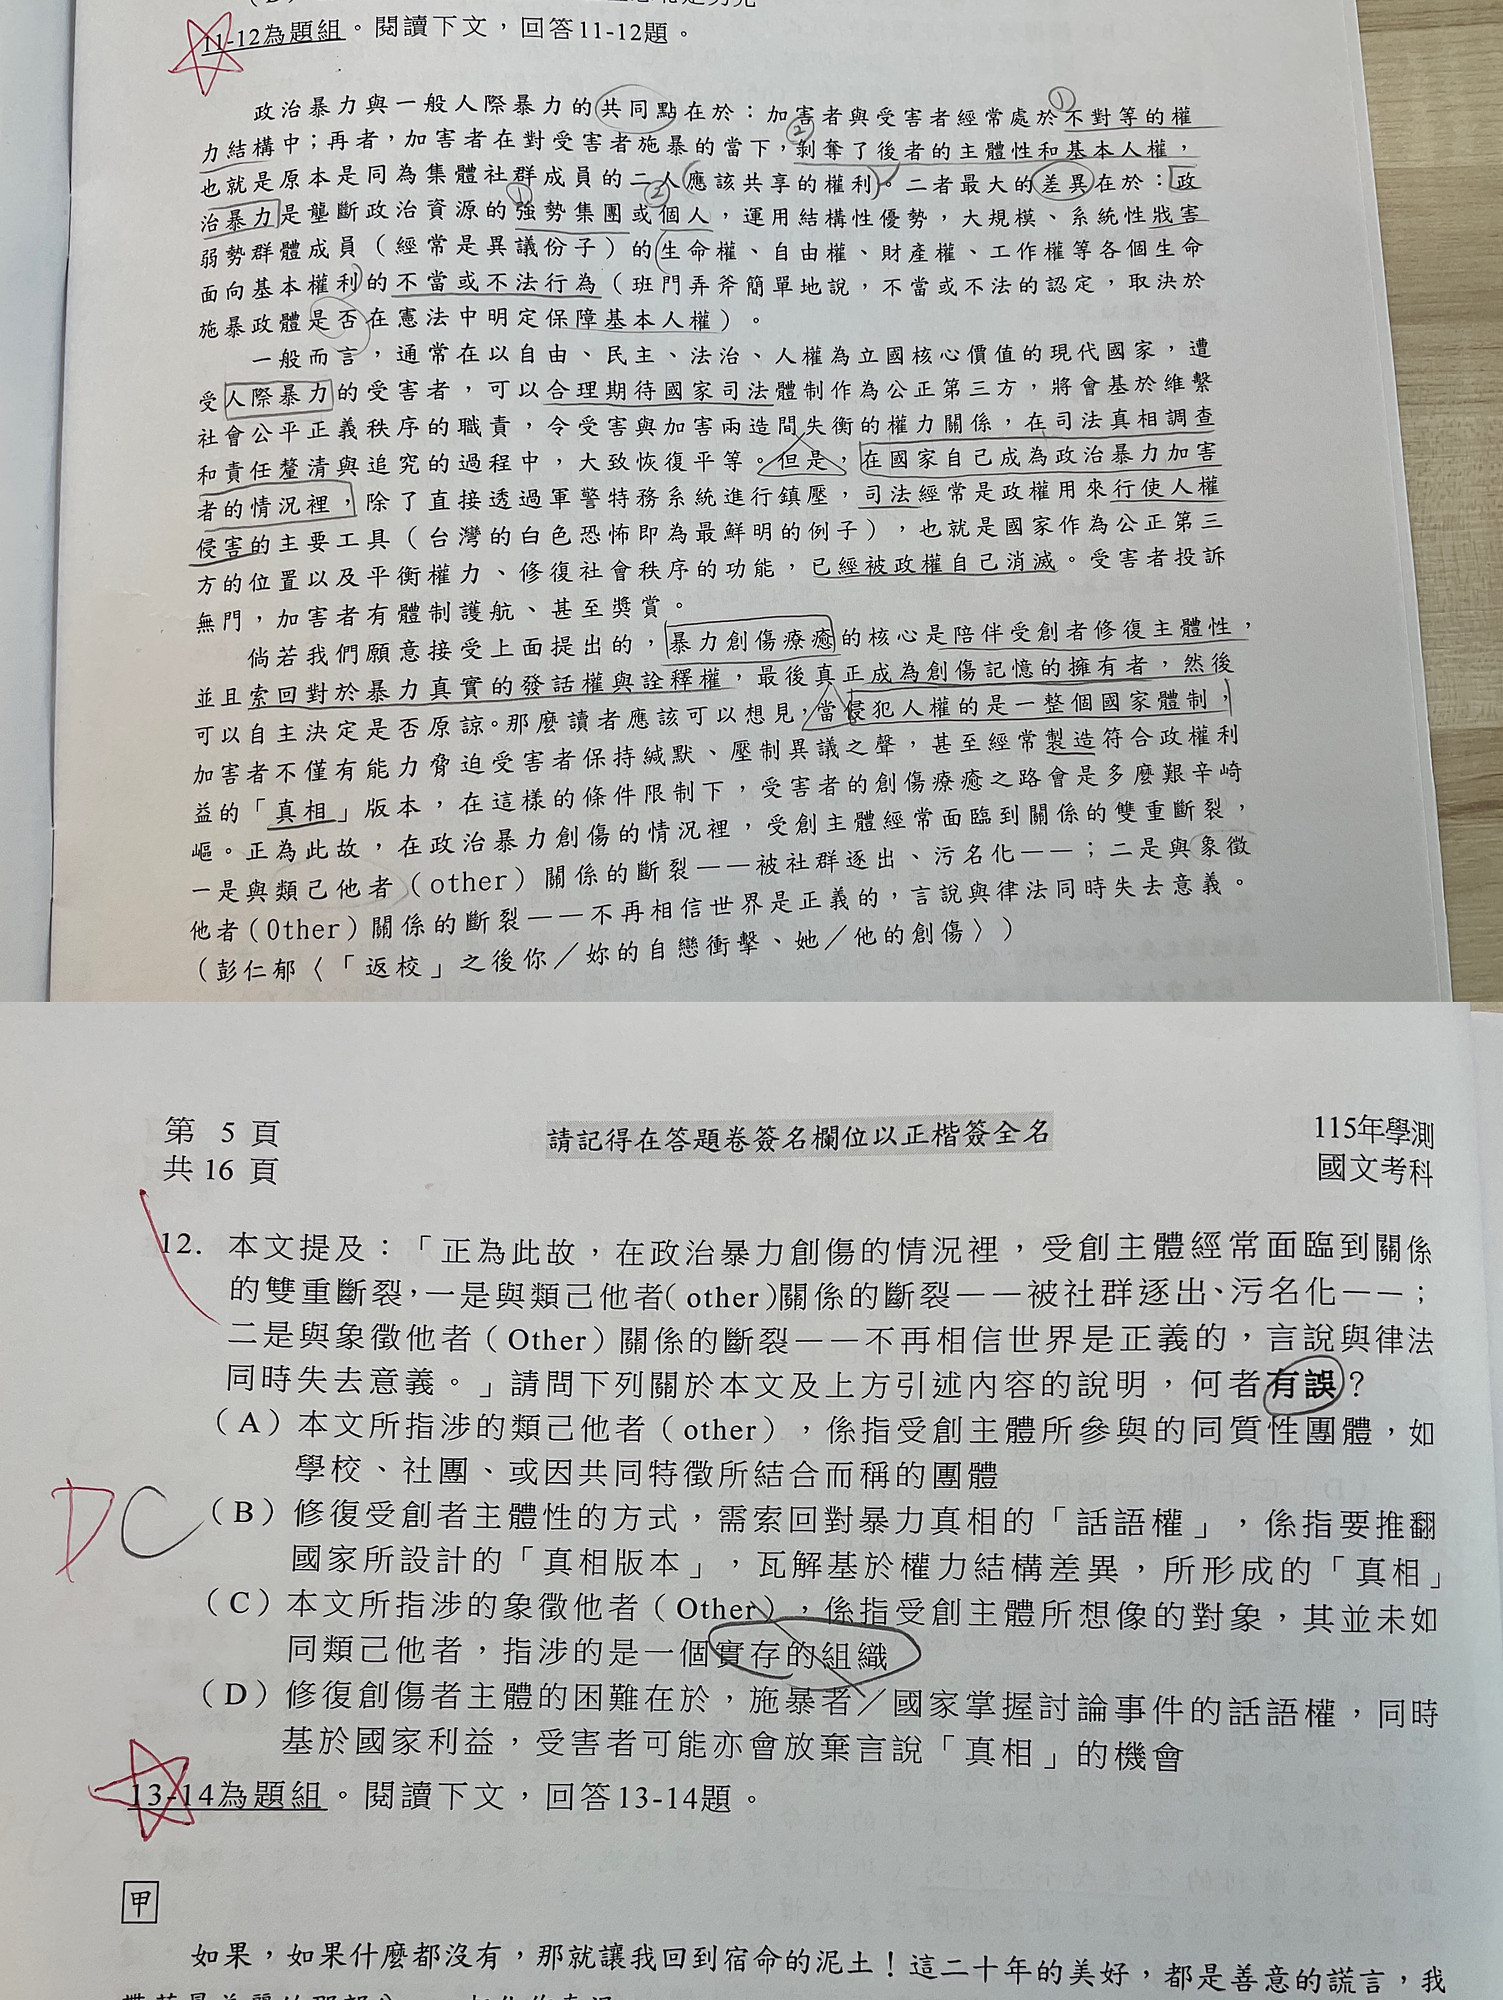 11-12為題組。閱讀下文，回答11-12題。
政治暴力與一般人際暴力的共同點在於：加害者與受害者經常處於不對等的權
力結構中；再者，加害者在對受害者施暴的當下，剝奪了後者的主體性和基本人權，
也就是原本是同為集體社群成員的二人應該共享的權利。二者最大的差異在於：政
治暴力是壟斷政治資源的強勢集團或個人，運用結構性優勢，大規模、系統性戕害
弱勢群體成員（經常是異議份子）的生命權、自由權、財產權、工作權等各個生命
面向基本權利的不當或不法行為（班門弄斧簡單地說，不當或不法的認定，取決於
施暴政體是否在憲法中明定保障基本人權）。
一般而言，通常在以自由、民主、法治、人權為立國核心價值的現代國家，遭
受人際暴力的受害者，可以合理期待國家司法體制作為公正第三方，將會基於維繫
社會公平正義秩序的職責，令受害與加害兩造間失衡的權力關係，在司法真相調查
和責任釐清與追究的過程中，大致恢復平等。但是，在國家自己成為政治暴力加害
者的情況裡，除了直接透過軍警特務系統進行鎮壓，司法經常是政權用來行使人權
侵害的主要工具（台灣的白色恐怖即為最鮮明的例子），也就是國家作為公正第三
方的位置以及平衡權力、修復社會秩序的功能，已經被政權自己消滅。受害者投訴
無門，加害者有體制護航、甚至獎賞。
倘若我們願意接受上面提出的，暴力創傷療癒的核心是陪伴受創者修復主體性，
並且索回對於暴力真實的發話權與詮釋權，最後真正成為創傷記憶的擁有者，然後
可以自主決定是否原諒。那麼讀者應該可以想見，當侵犯人權的是一整個國家體制，
加害者不僅有能力脅迫受害者保持緘默、壓制異議之聲，甚至經常製造符合政權利
益的「真相」版本，在這樣的條件限制下，受害者的創傷療癒之路會是多麼艱辛崎
嶇。正為此故，在政治暴力創傷的情況裡，受創主體經常面臨到關係的雙重斷裂，
一是與類己他者（other）關係的斷裂——被社群逐出、污名化——；二是與象徵
他者（Other）關係的斷裂——不再相信世界是正義的，言說與律法同時失去意義。
（彭仁郁〈「返校」之後你／妳的自戀衝擊、她／他的創傷〉）
第 5 頁
共 16 頁
請記得在答題卷簽名欄位以正楷簽全名
115年學測
國文考科
12. 本文提及：「正為此故，在政治暴力創傷的情況裡，受創主體經常面臨到關係
的雙重斷裂，一是與類己他者(other)關係的斷裂——被社群逐出、污名化——；
二是與象徵他者（Other）關係的斷裂——不再相信世界是正義的，言說與律法
同時失去意義。」請問下列關於本文及上方引述內容的說明，何者有誤？
（A）本文所指涉的類己他者（other），係指受創主體所參與的同質性團體，如
學校、社團、或因共同特徵所結合而稱的團體
DC
（B）修復受創者主體性的方式，需索回對暴力真相的「話語權」，係指要推翻
國家所設計的「真相版本」，瓦解基於權力結構差異，所形成的「真相」
（C）本文所指涉的象徵他者（Other），係指受創主體所想像的對象，其並未如
同類己他者，指涉的是一個實存的組織
（D）修復創傷者主體的困難在於，施暴者／國家掌握討論事件的話語權，同時
基於國家利益，受害者可能亦會放棄言說「真相」的機會
13-14為題組。閱讀下文，回答13-14題。
甲
如果，如果什麼都沒有，那就讓我回到宿命的泥土！這二十年的美好，都是善意的謊言，我